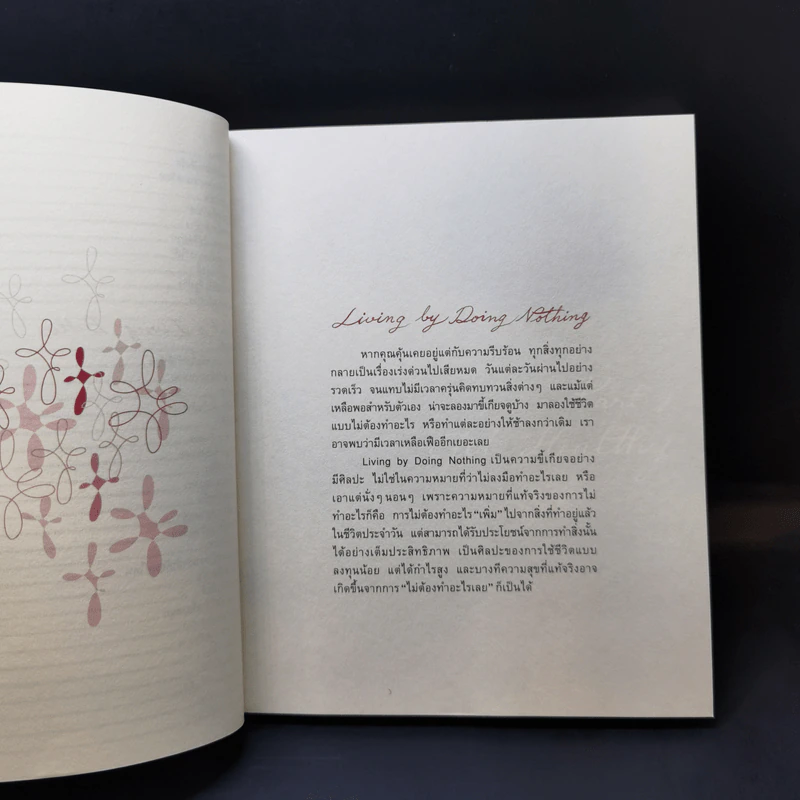 Living by Doing Nothing
หากคุณคุ้นเคยอยู่แต่กับความรีบร้อน ทุกสิ่งทุกอย่าง
กลายเป็นเรื่องเร่งด่วนไปเสียหมด วันแต่ละวันผ่านไปอย่าง
รวดเร็ว จนแทบไม่มีเวลาครุ่นคิดทบทวนสิ่งต่างๆ และแม้แต่
เหลือพอสำหรับตัวเอง น่าจะลองมาขี้เกียจดูบ้าง มาลองใช้ชีวิต
แบบไม่ต้องทำอะไร หรือทำแต่ละอย่างให้ช้าลงกว่าเดิม เรา
อาจพบว่ามีเวลาเหลือเฟืออีกเยอะเลย
Living by Doing Nothing เป็นความขี้เกียจอย่าง
มีศิลปะ ไม่ใช่ในความหมายที่ว่าไม่ลงมือทำอะไรเลย หรือ
เอาแต่นั่งๆ นอนๆ เพราะความหมายที่แท้จริงของการไม่
ทำอะไรก็คือ การไม่ต้องทำอะไร “เพิ่ม” ไปจากสิ่งที่ทำอยู่แล้ว
ในชีวิตประจำวัน แต่สามารถได้รับประโยชน์จากการทำสิ่งนั้น
ได้อย่างเต็มประสิทธิภาพ เป็นศิลปะของการใช้ชีวิตแบบ
ลงทุนน้อย แต่ได้กำไรสูง และบางทีความสุขที่แท้จริงอาจ
เกิดขึ้นจากการ “ไม่ต้องทำอะไรเลย” ก็เป็นได้